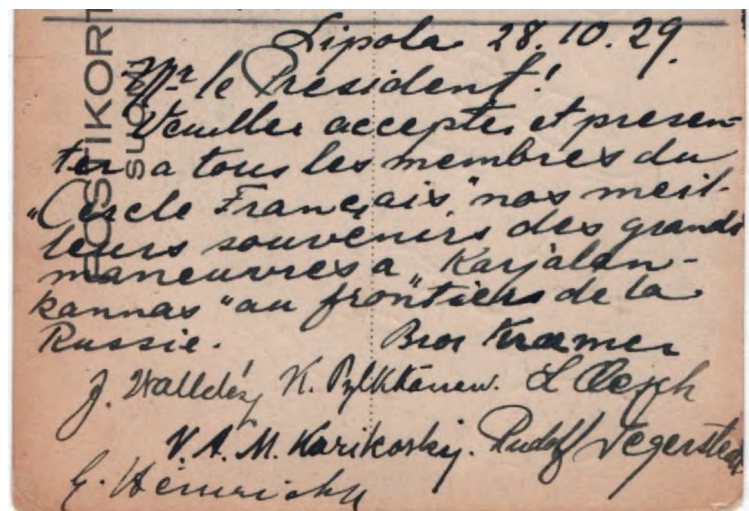 Lipola 28.10.29.
Mr le Président!
Veuillez accepter et presen-
ter a tous les membres du
"Cercle Français" nos meil-
leurs souvenirs des grands
maneuvres a "Karjalan-
kannas" au frontiers de la
Russie. Bror Kræmer
J. Walldén K. Pylkkänen. L Oesch
V. A. M. Karikoski. Rudolf
E. Heinrichs
POSTIKORT
SUO